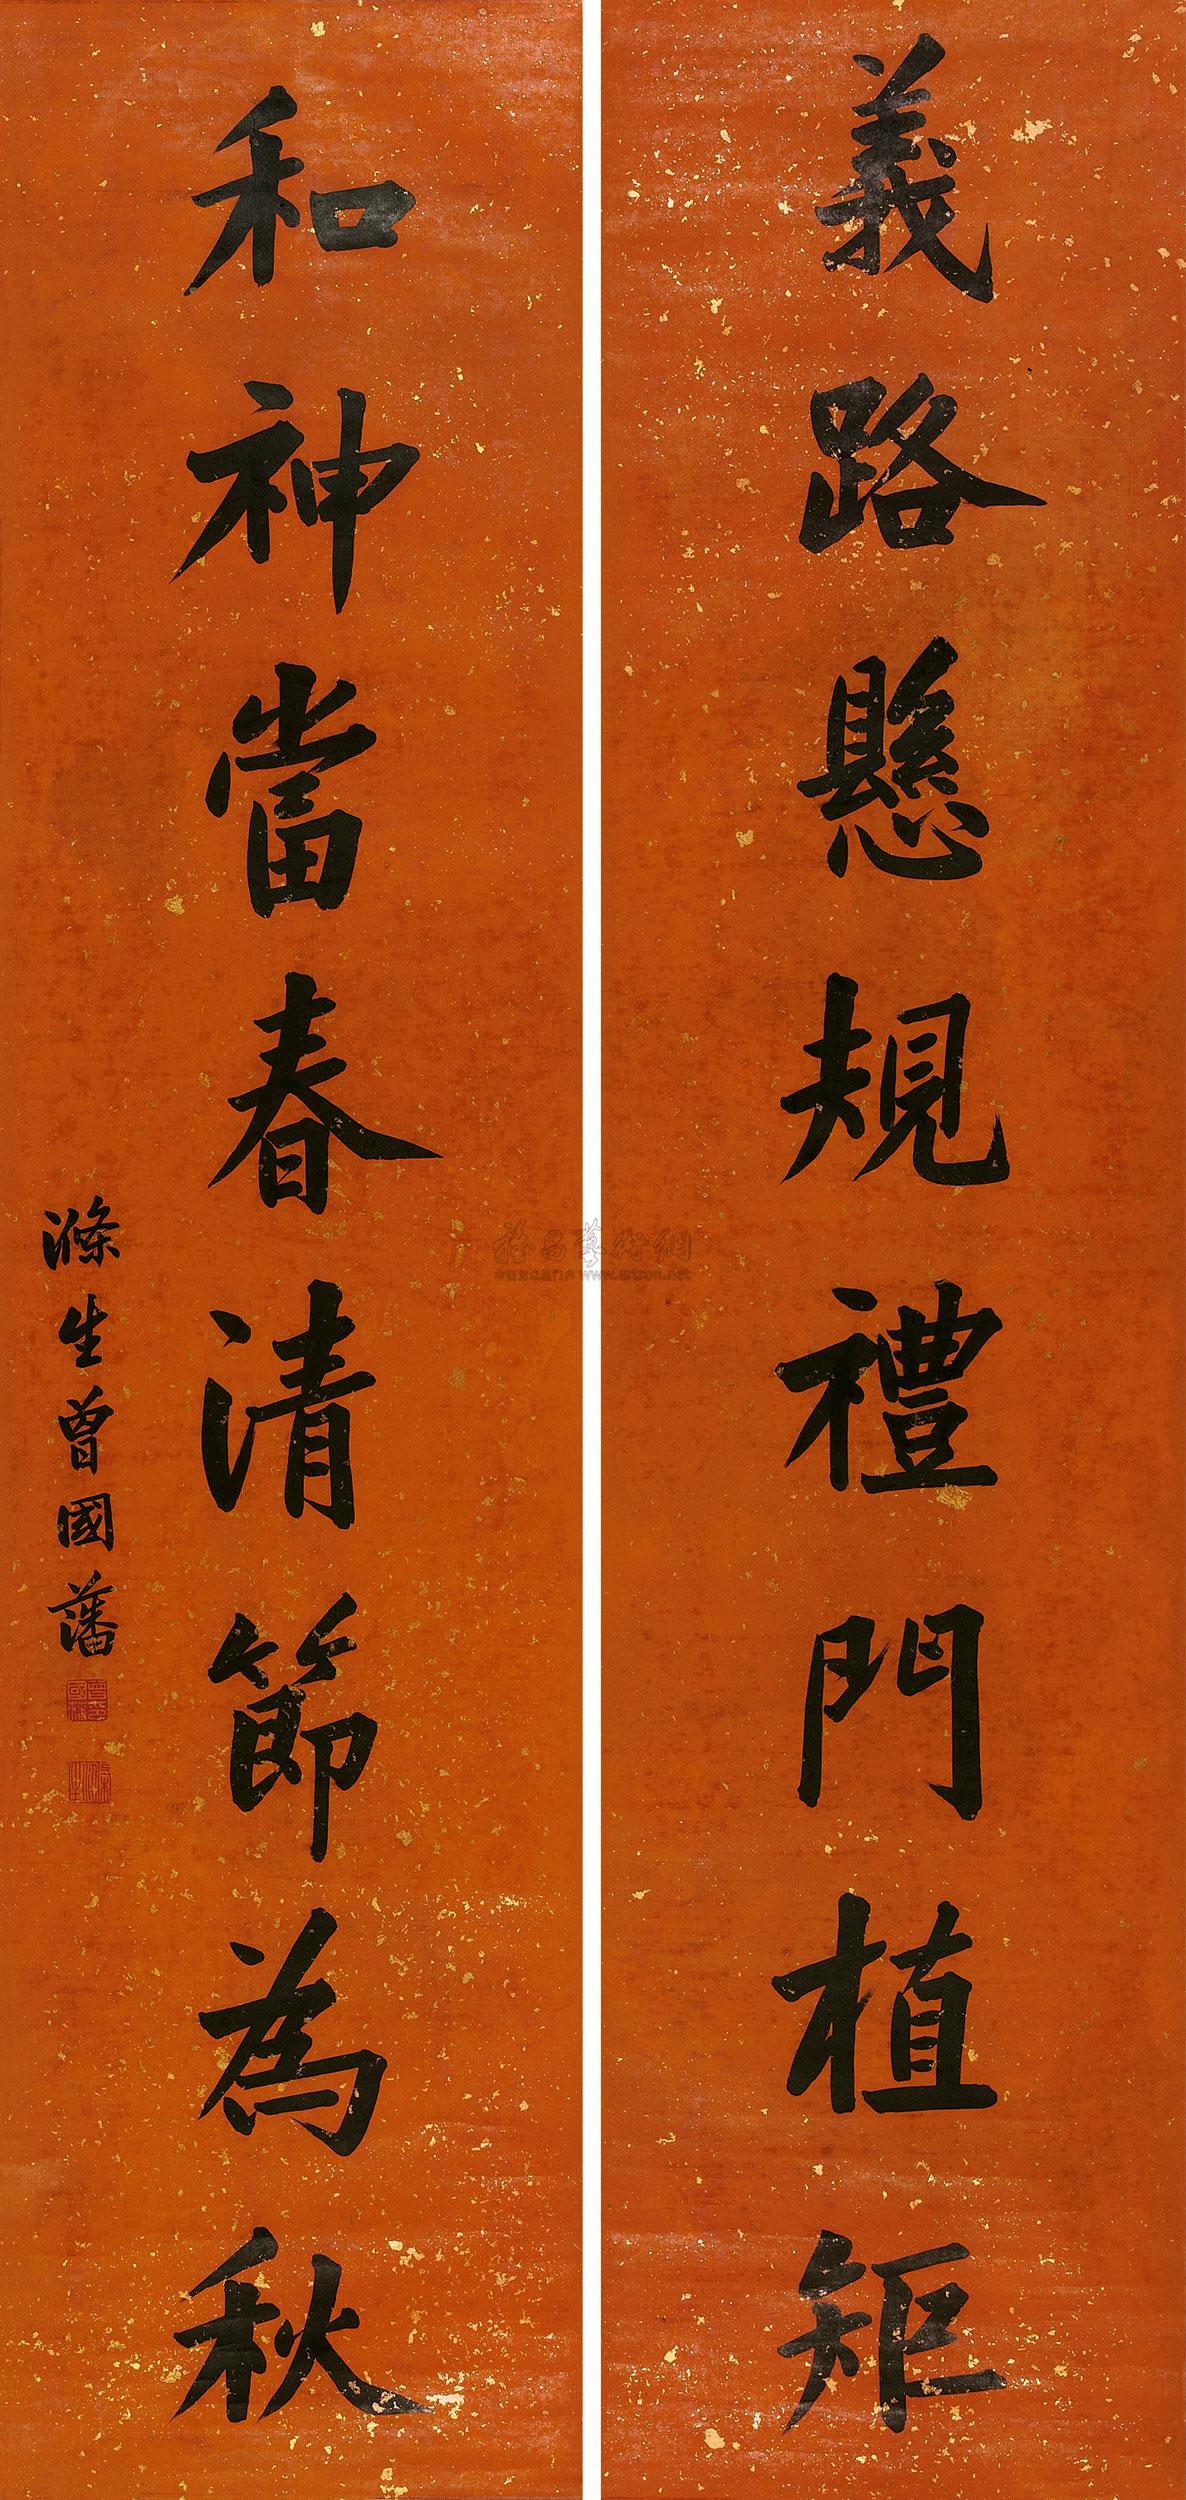 義路懸規禮門植矩
和神當春清節為秋
滌生曾國藩
www.artron.net